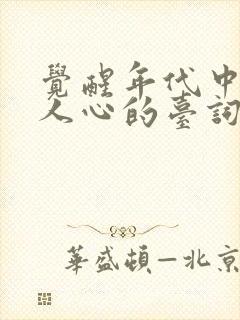 覺醒年代中
人心的臺詞
華盛頓—北京